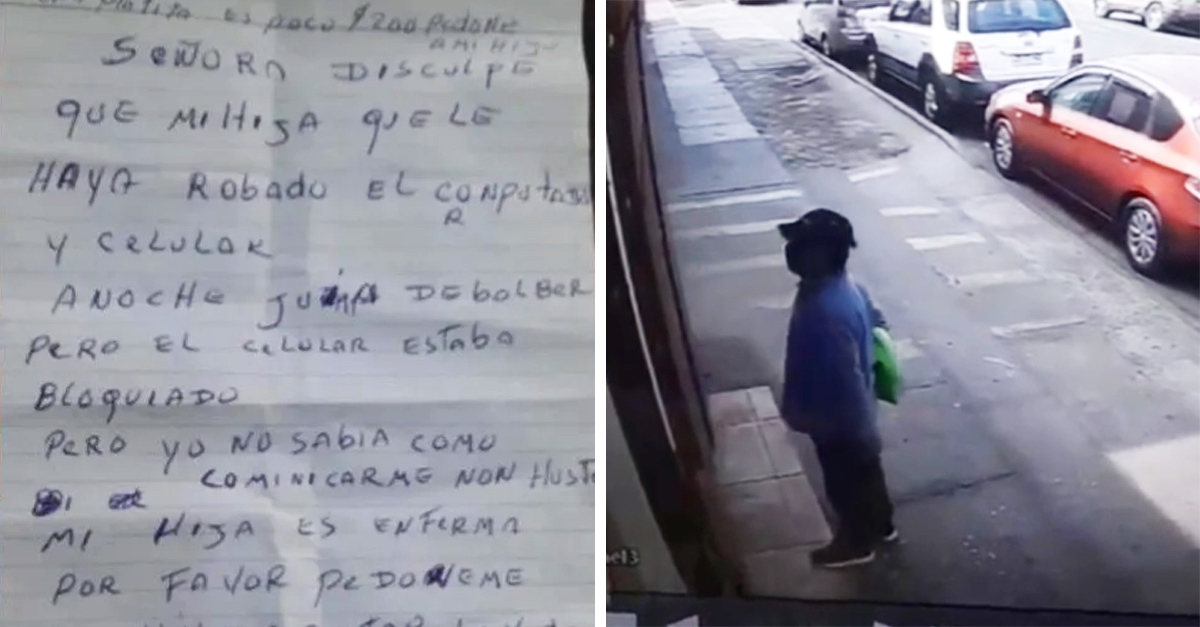 es poco $200 PeDONe
A MI HIJ
SEÑORA DISCULPE
QUE MI HIJA QUE LE
HAYA ROBADO EL CONPUTA
R
Y CELULAR
ANOCHE DEBOLBER
PERO EL CELULAR ESTABA
BLOQUIADO
PERO YO NO SABIA COMO
COMINICARME NON HUSTE
MI HIJA ES ENFERMA
POR FAVOR PEDONEME
el3